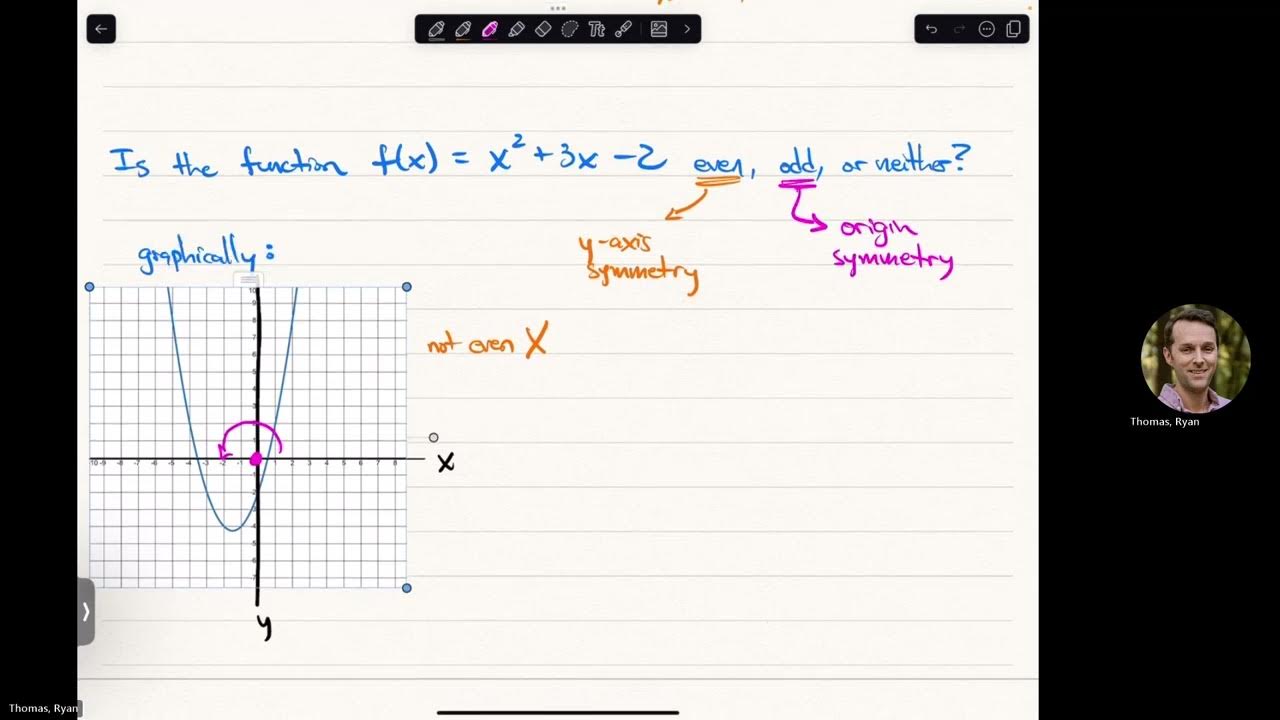 Is the function f(x) = x² + 3x - 2 even, odd, or neither?
y-axis
symmetry
origin
symmetry
graphically:
not even X
x
y
Tt
Thomas, Ryan
Thomas, Ryan